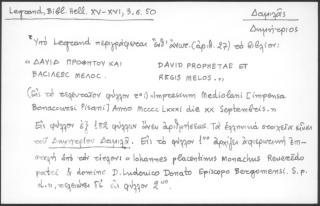 Legrand, Bibl. Hell. XV-XVI, 3, 6. 50
Δαμιλᾶς
Δημήτριος
Ὑπὸ Legrand περιγράφεται ὑπ' ἀριθ. 27) τὸ βιβλίον:
"ΔΑΥΙΔ ΠΡΟΦΗΤΟΥ ΚΑΙ
ΒΑΣΙΛΕΩΣ ΜΕΛΟΣ.
DAVID PROPHETAE ET
REGIS MELOS."
(Εἰς τὸ τελευταῖον φύλλον Impressum Mediolani [impensa
Bonaccursi Pisani] Anno MCCCC LXXXI die XX Septembris."
Εἰς φύλλον ἐξ 182 φύλλων ἄνευ ἀριθμήσεως. Τὰ ἑλληνικὰ στοιχεῖα εἶναι
τοῦ Δημητρίου Δαμιλᾶ. Εἰς τὸ φύλλον 1ον ἀρχίζει ἀφιερωτικὴ ἐπι-
στολὴ ὑπὸ τὸν τίτλον: "Iohannes placentinus Monachus Reverendo
patri & domino D. Ludovico Donato Episcopo Bergomensi. S. p.
d.", τελειώνει δὲ εἰς φύλλον 2ον.